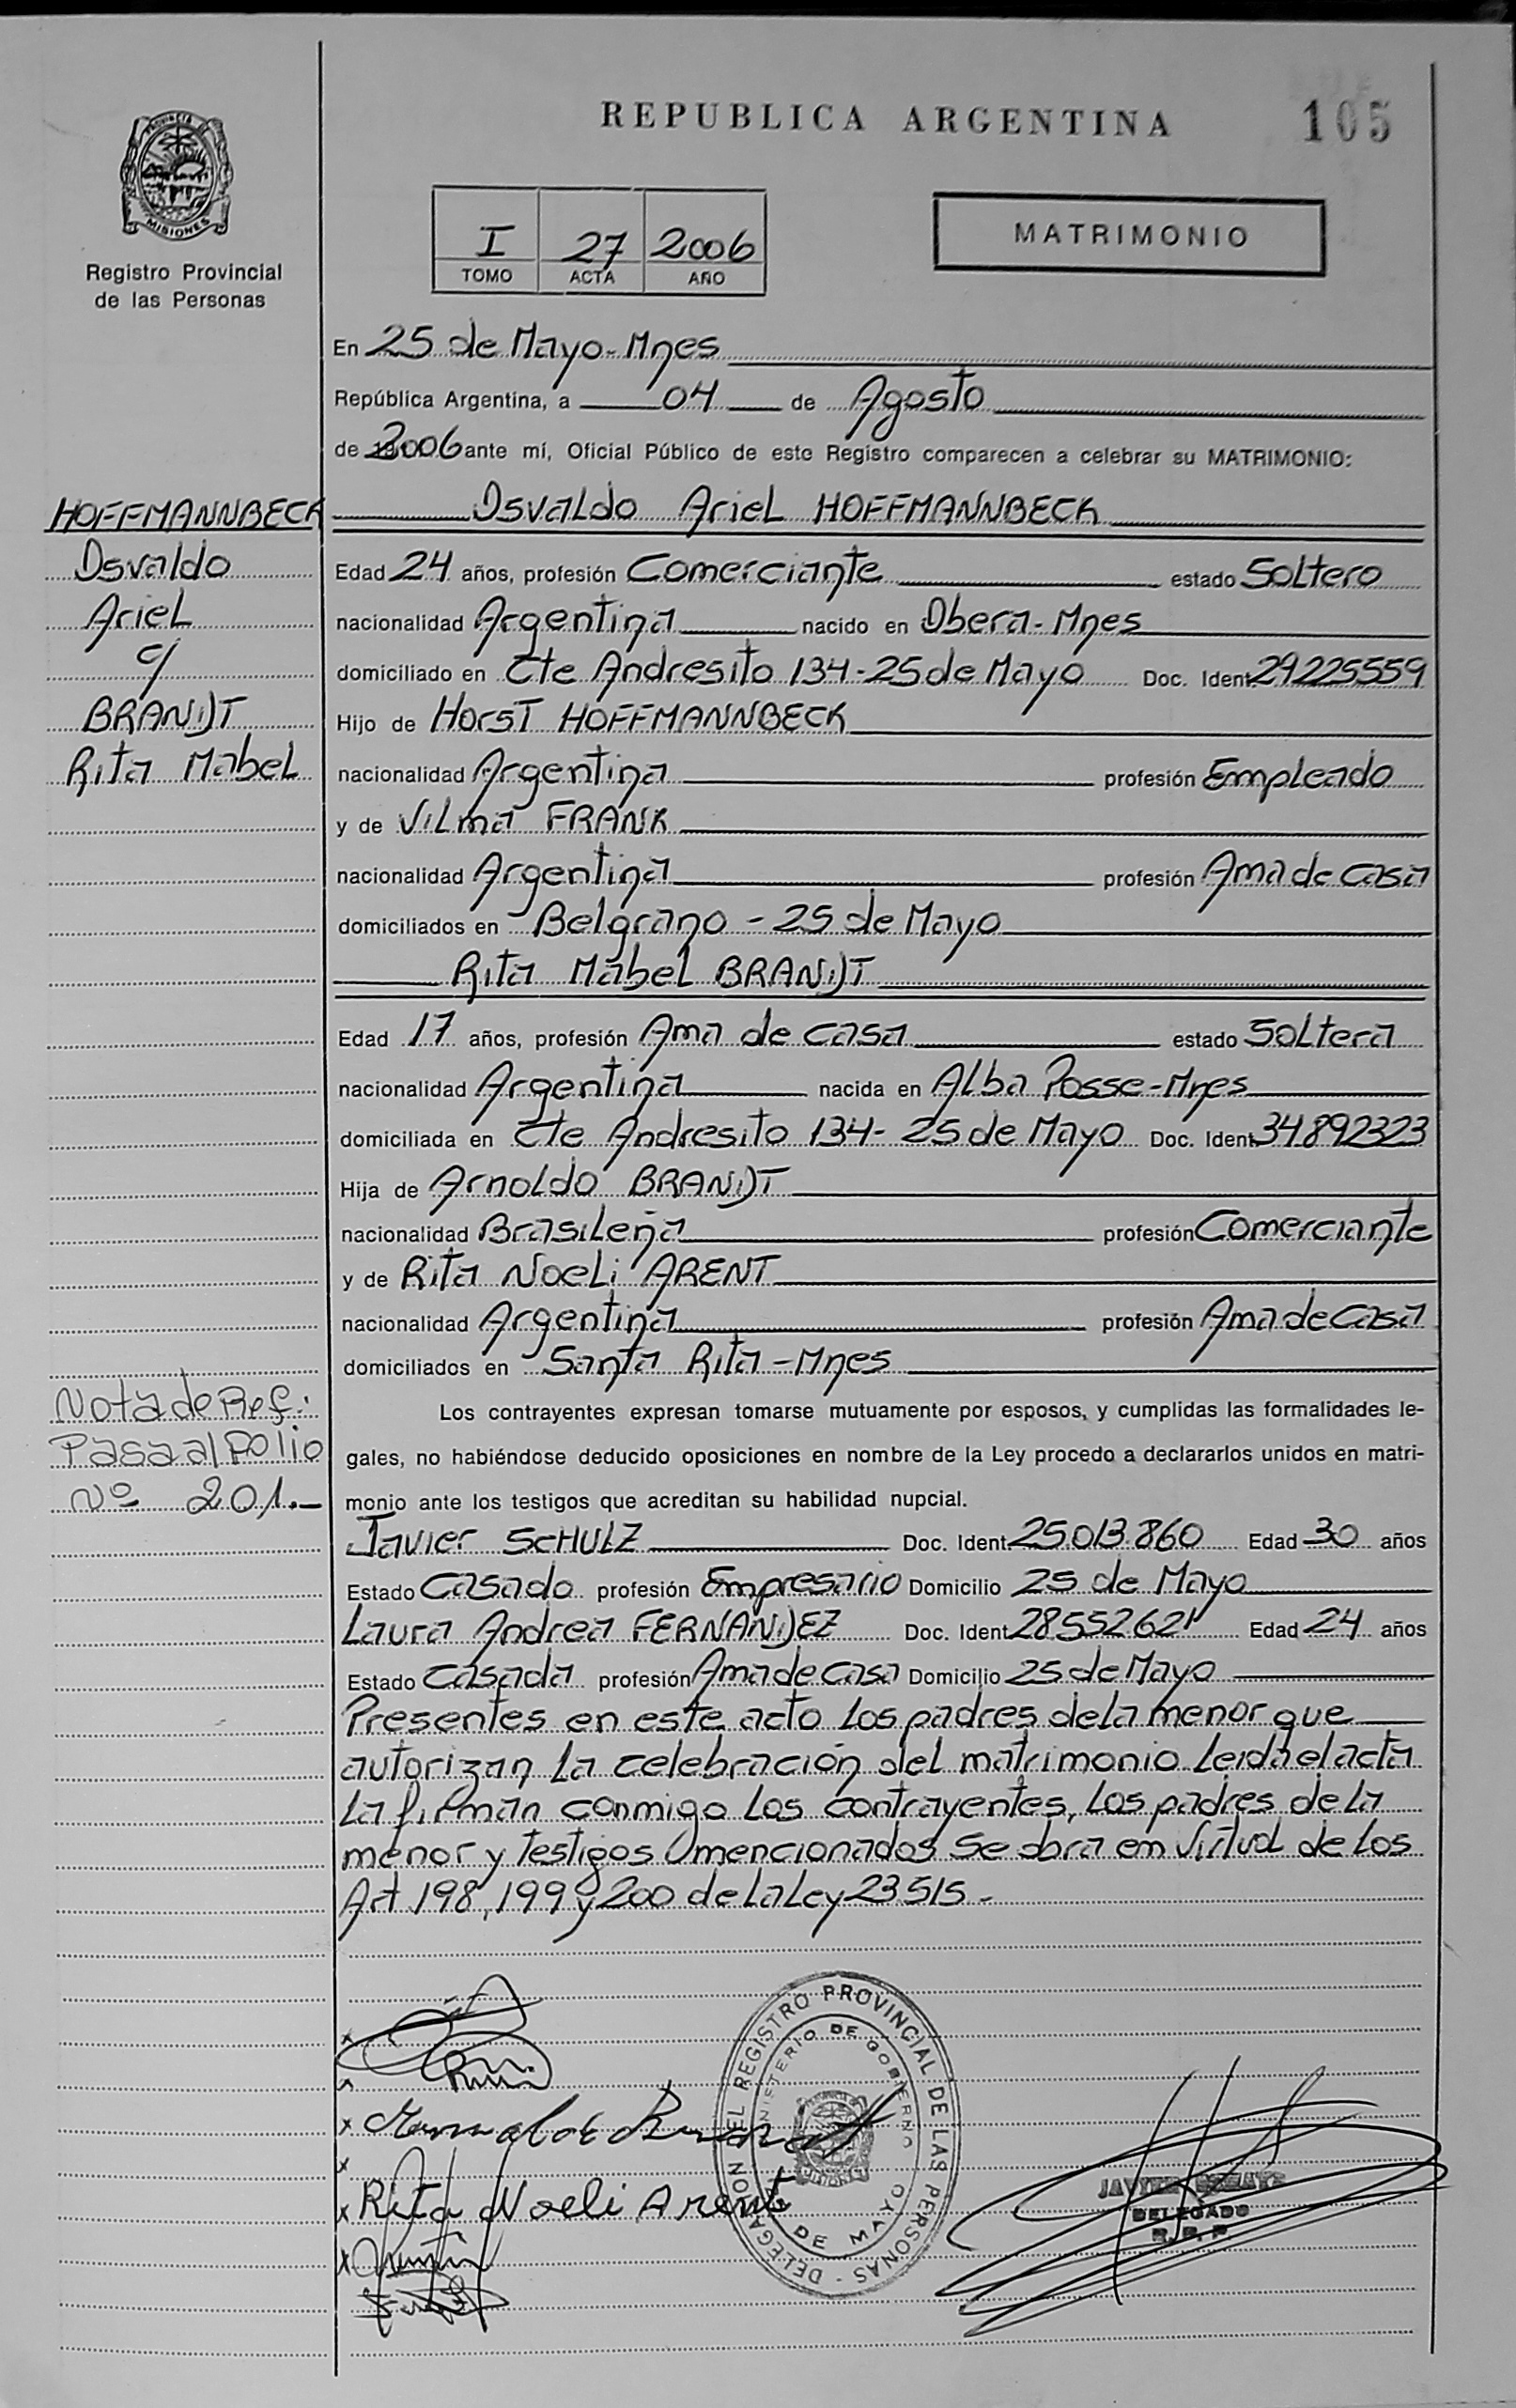 REPUBLICA ARGENTINA
105
PROVINCIA DE
MISIONES
Registro Provincial
de las Personas
I 27 2006
TOMO ACTA AÑO
MATRIMONIO
En 25 de Mayo-Mnes
República Argentina, a 04 de Agosto
de 2006 ante mí, Oficial Público de este Registro comparecen a celebrar su MATRIMONIO:
HOFFMANNBECK
Osvaldo
Ariel
c/
BRANDT
Rita Mabel
Osvaldo Ariel HOFFMANNBECK
Edad 24 años, profesión Comerciante estado Soltero
nacionalidad Argentina nacido en Obera-Mnes
domiciliado en Cte Andresito 134-25 de Mayo Doc. Ident. 29225559
Hijo de Horst HOFFMANNBECK
nacionalidad Argentina profesión Empleado
y de Vilma FRANK
nacionalidad Argentina profesión Ama de casa
domiciliados en Belgrano - 25 de Mayo
Rita Mabel BRANDT
Edad 17 años, profesión Ama de casa estado Soltera
nacionalidad Argentina nacida en Alba Posse-Mnes
domiciliada en Cte Andresito 134- 25 de Mayo Doc. Ident. 34.892323
Hija de Arnoldo BRANDT
nacionalidad Brasileña profesión Comerciante
y de Rita Noeli ARENT
nacionalidad Argentina profesión Ama de Casa
domiciliados en Santa Rita-Mnes
Nota de Ref.:
Pasa al Folio
Nº 201.-
Los contrayentes expresan tomarse mutuamente por esposos, y cumplidas las formalidades le-
gales, no habiéndose deducido oposiciones en nombre de la Ley procedo a declararlos unidos en matri-
monio ante los testigos que acreditan su habilidad nupcial.
Javier SCHULZ Doc. Ident. 25.013.860 Edad 30 años
Estado Casado profesión Empresario Domicilio 25 de Mayo
Laura Andrea FERNANDEZ Doc. Ident. 28552621 Edad 24 años
Estado Casada profesión Ama de casa Domicilio 25 de Mayo
Presentes en este acto los padres de la menor que
autorizan la celebración del matrimonio. Leida el acta
la firman conmigo los contrayentes, los padres de la
menor y testigos mencionados se obra em virtud de los
Art 198, 199 y 200 de la Ley 23.515-
x
x
x
x
x Rita Noeli Arent
x
DELEGACION DEL REGISTRO PROVINCIAL DE LAS PERSONAS
MINISTERIO DE GOBIERNO
DE MAYO
DELEGADO
R. P. P.